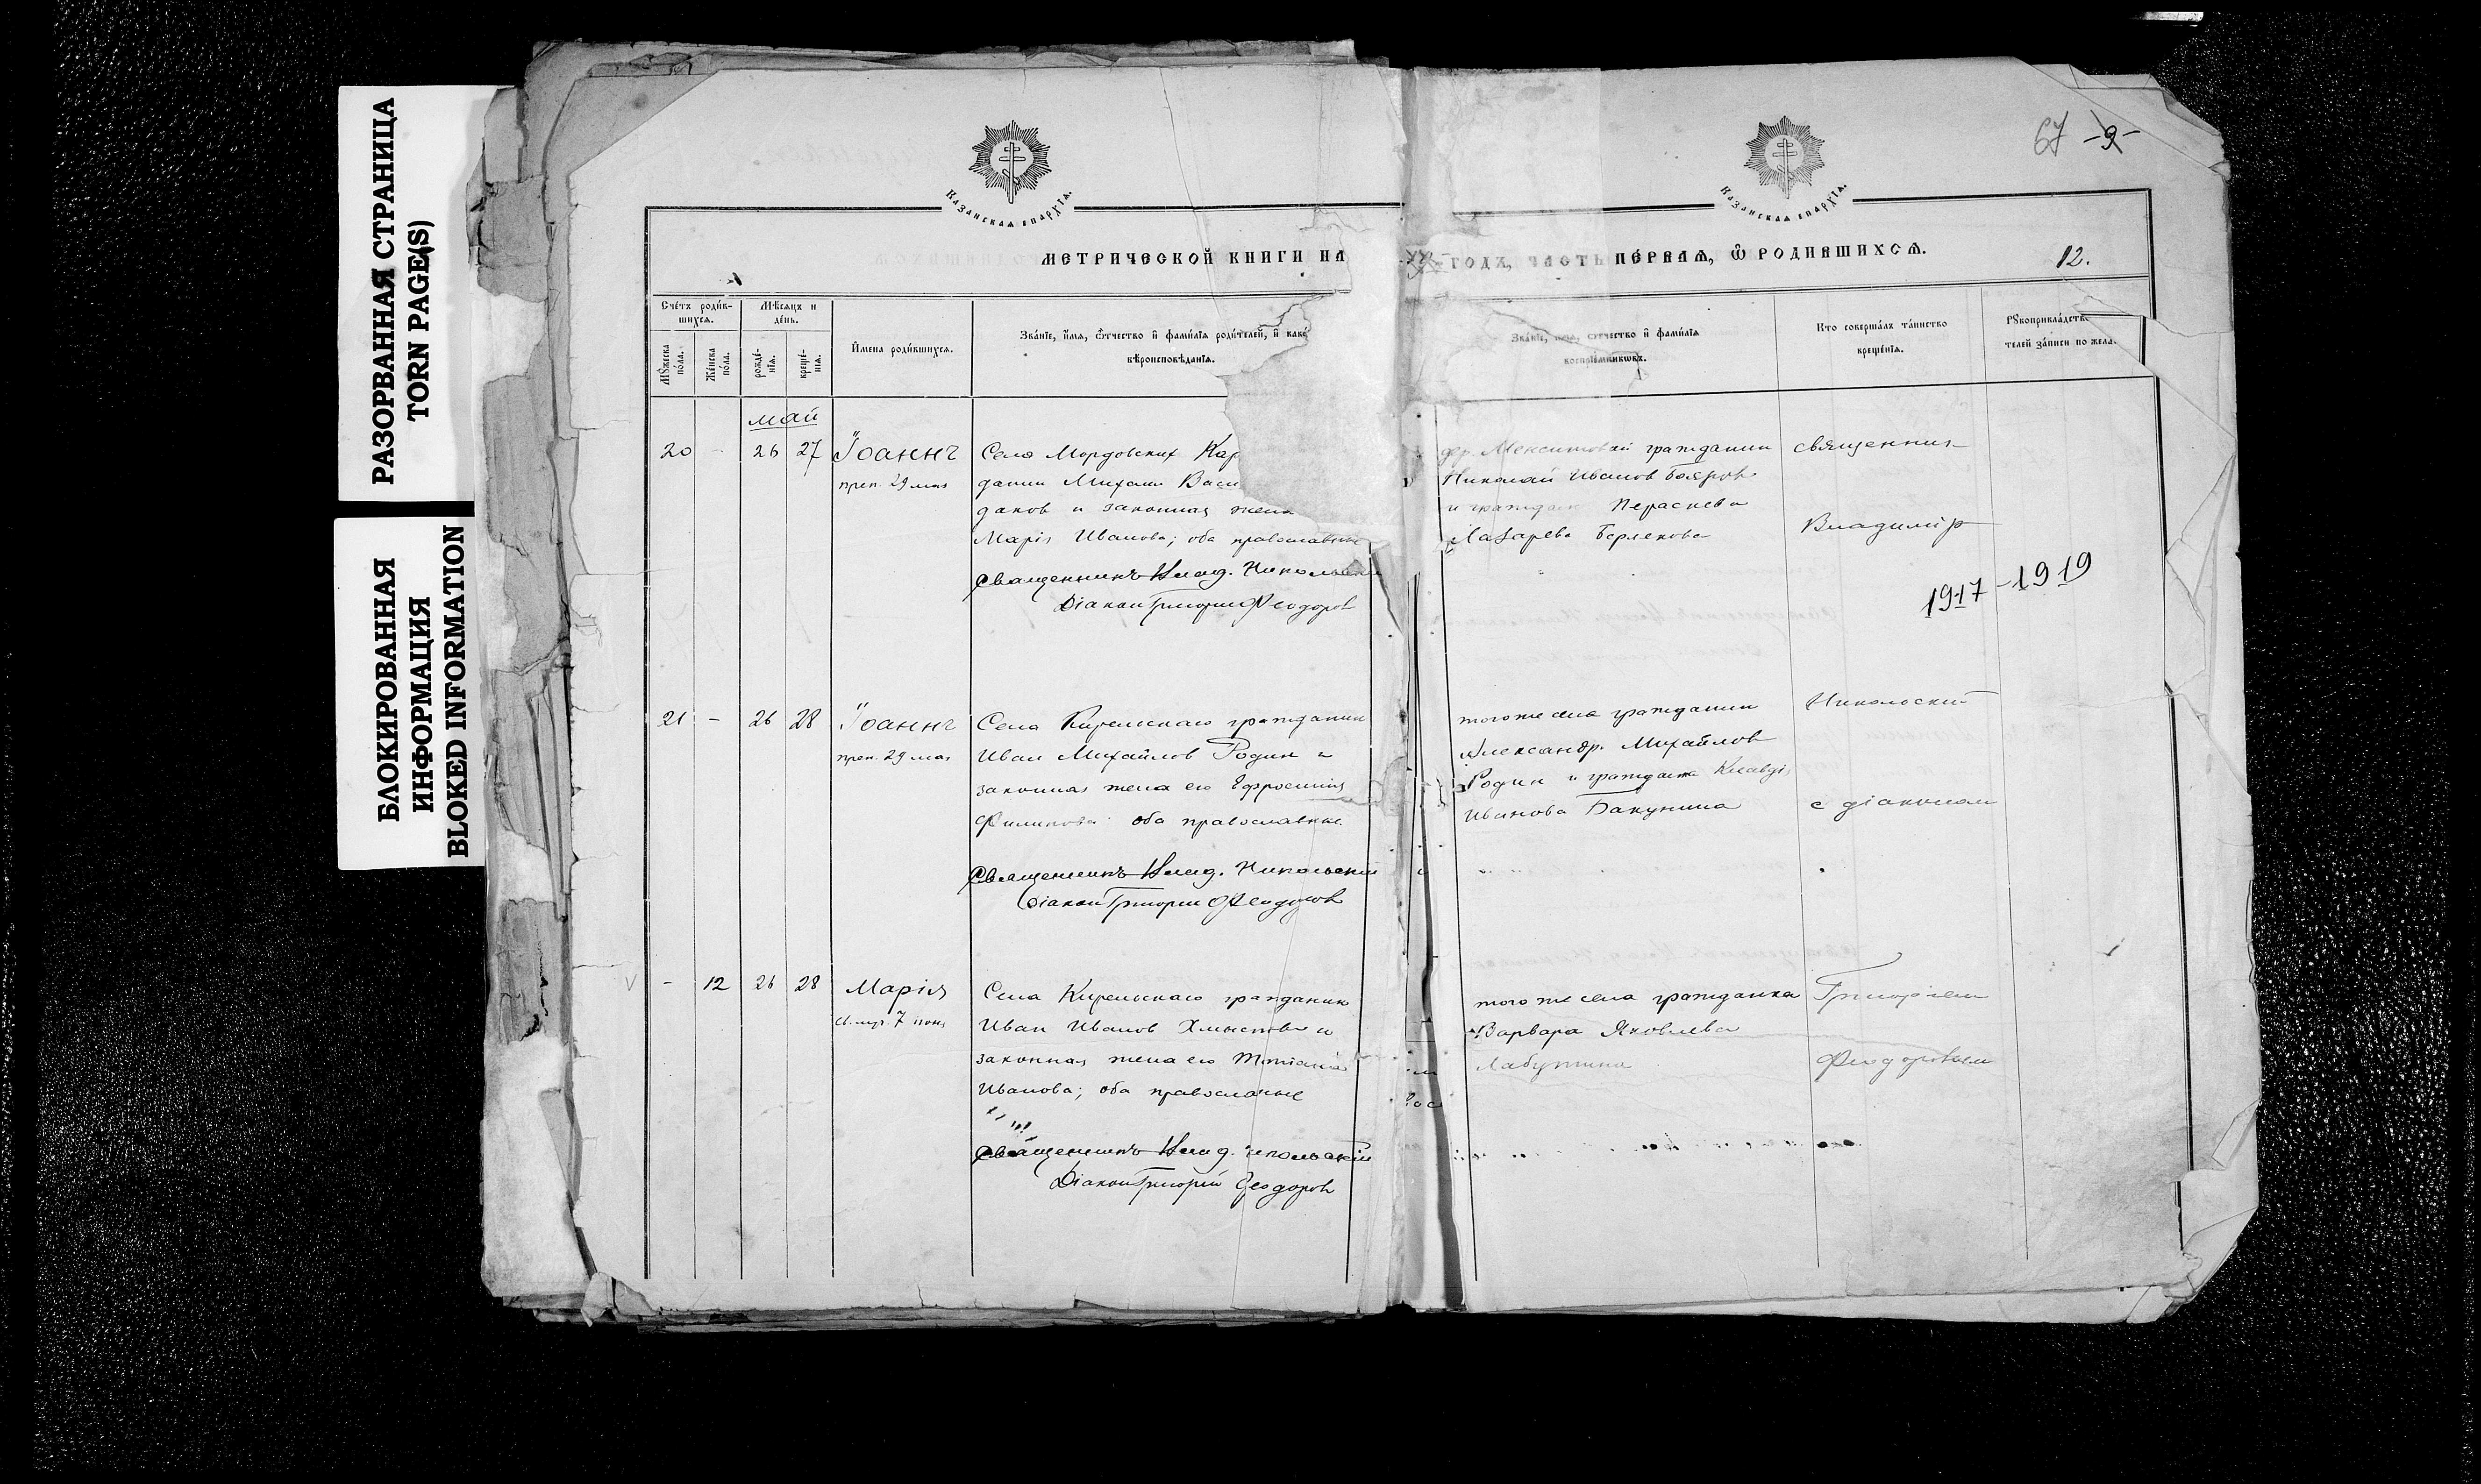 РАЗОРВАННАЯ СТРАНИЦА
TORN PAGE(S)
БЛОКИРОВАННАЯ
ИНФОРМАЦИЯ
BLOKED INFORMATION
Казанская епархїѧ.
Казанская епархїѧ.
67 -9-
МЕТРИЧЕСКОЙ КНИГИ НА
ГОДЪ, ЧАСТЬ ПЕРВАѦ, Ѿ РОДИВШИХСѦ.
12.
Счетъ роди́в-
шихсѧ.
Мѣсѧцъ и
де́нь.
Мꙋ́жеска
по́ла.
Же́нска
по́ла.
рожде́-
нїѧ.
креще́-
нїѧ.
И҆мена роди́вшихсѧ.
Зва́нїе, и҆́мѧ, ѻ҆́тчество и҆ фами́лїѧ роди́телей, и҆ како́
вѣроисповѣ́данїѧ.
Зва́нїе, и҆́мѧ, ѻ҆́тчество и҆ фами́лїѧ
воспрїе́мникѡвъ.
Кто соверша́лъ та́инство
креще́нїѧ.
Рꙋкоприкла́дство
телей за́писи по жела
май
20 - 26 27 Іоаннъ
преп. 29 мая
Села Мордовских Кар
данин Михаил Васи
даков и законная жена
Марія Иванова; оба православные
Священникъ Влад. Никольскій
Діакон Григорий Феодоров
дер. гражданин
Николай Иванов Бояров
и граждан Параскева
Лазарева
священник
Владимір
1917-1919
21 - 26 28 Іоаннъ
преп. 29 мая
Села Кирельскаго гражданин
Иван Михайлов Родин и
законная жена его Ефросинія
Филипова оба православные
Священникъ Влад. Никольскій
Діакон Григорий Феодоров
того же села гражданин
Александр Михайлов
Родин и гражданка Клавдія
Иванова Бакунина
Никольскій
с діаконом
- 12 26 28 Марія
св. муч. 7 іюня
Села Кирельскаго гражданин
Иван Иванов и
законная жена его Татіана
Иванова; оба православные
Священникъ Влад. Никольскій
Діакон Григорій Феодоров
того же села гражданка
Варвара Яковлева
Лабутина
Григоріем
Феодоровым